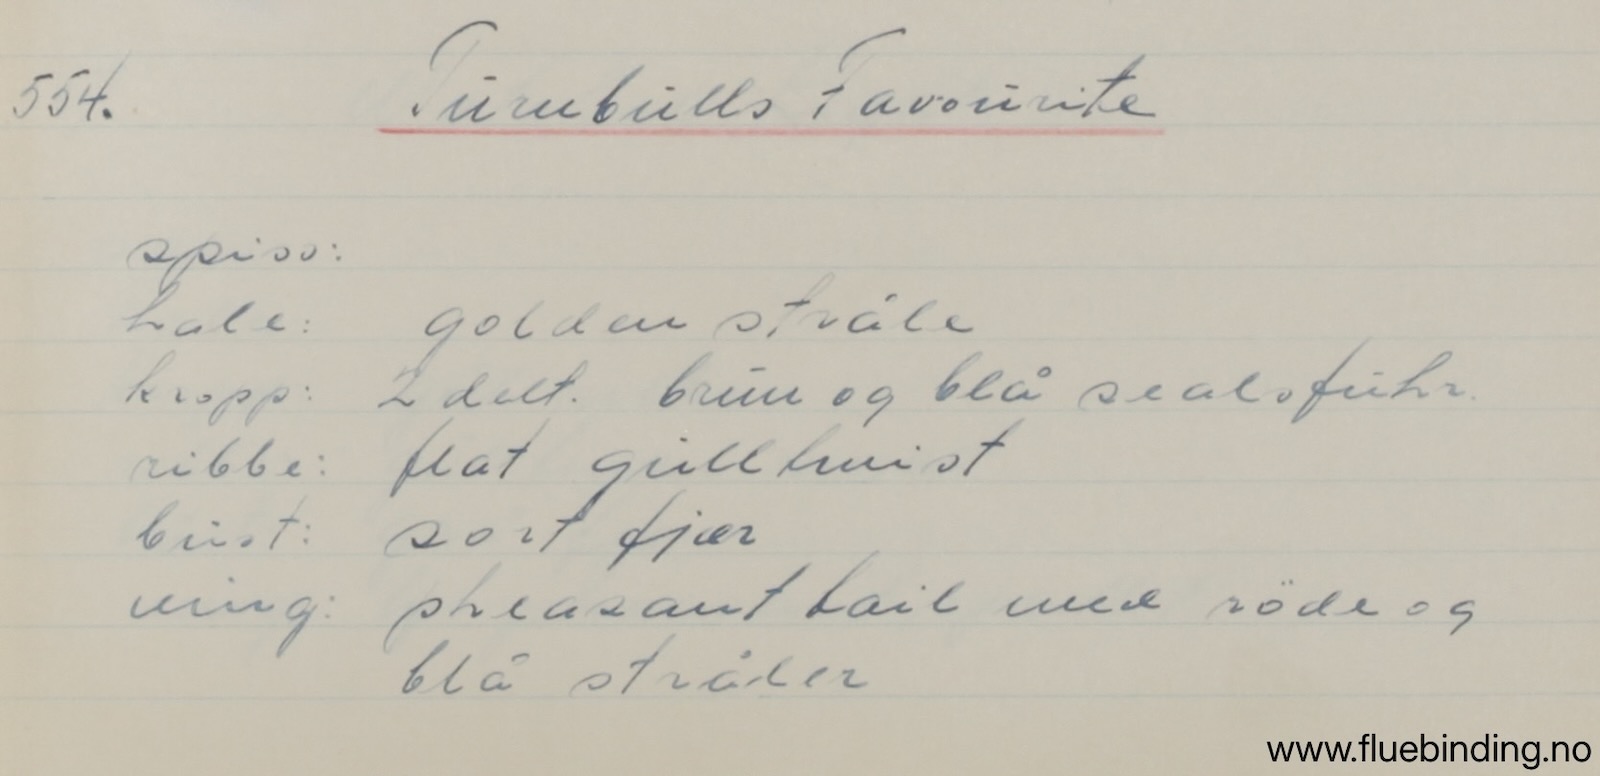 554. Turnbulls Favourite
spiss:
hale: golden stråle
kropp: 2 delt. brun og blå sealsfuhr.
ribbe: flat gull twist
bust: sort fjær
ving: pheasant tail med röde og
blå stråler
www.fluebinding.no